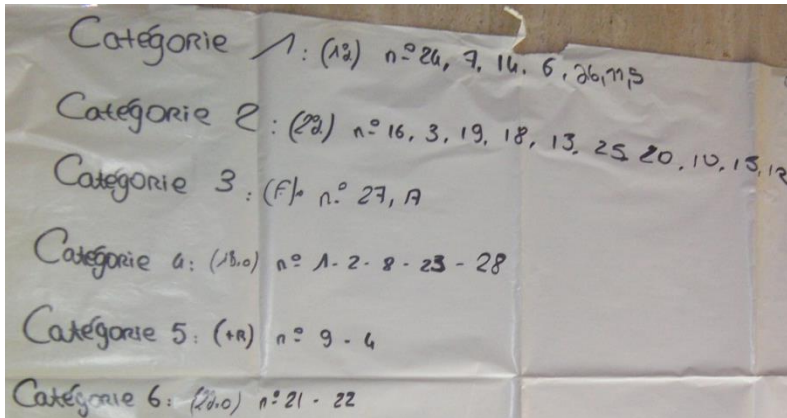 Catégorie 1 : (1d) n° 24, 7, 14, 6, 26, 11, 5
Catégorie 2 : (2d) n° 16, 3, 19, 18, 13, 25, 20, 10, 15, 12
Catégorie 3 : (F) n° 27, 17
Catégorie 4 : n° 1 - 2 - 8 - 23 - 28
Catégorie 5 : (+R) n° 9 - 4
Catégorie 6 : n° 21 - 22